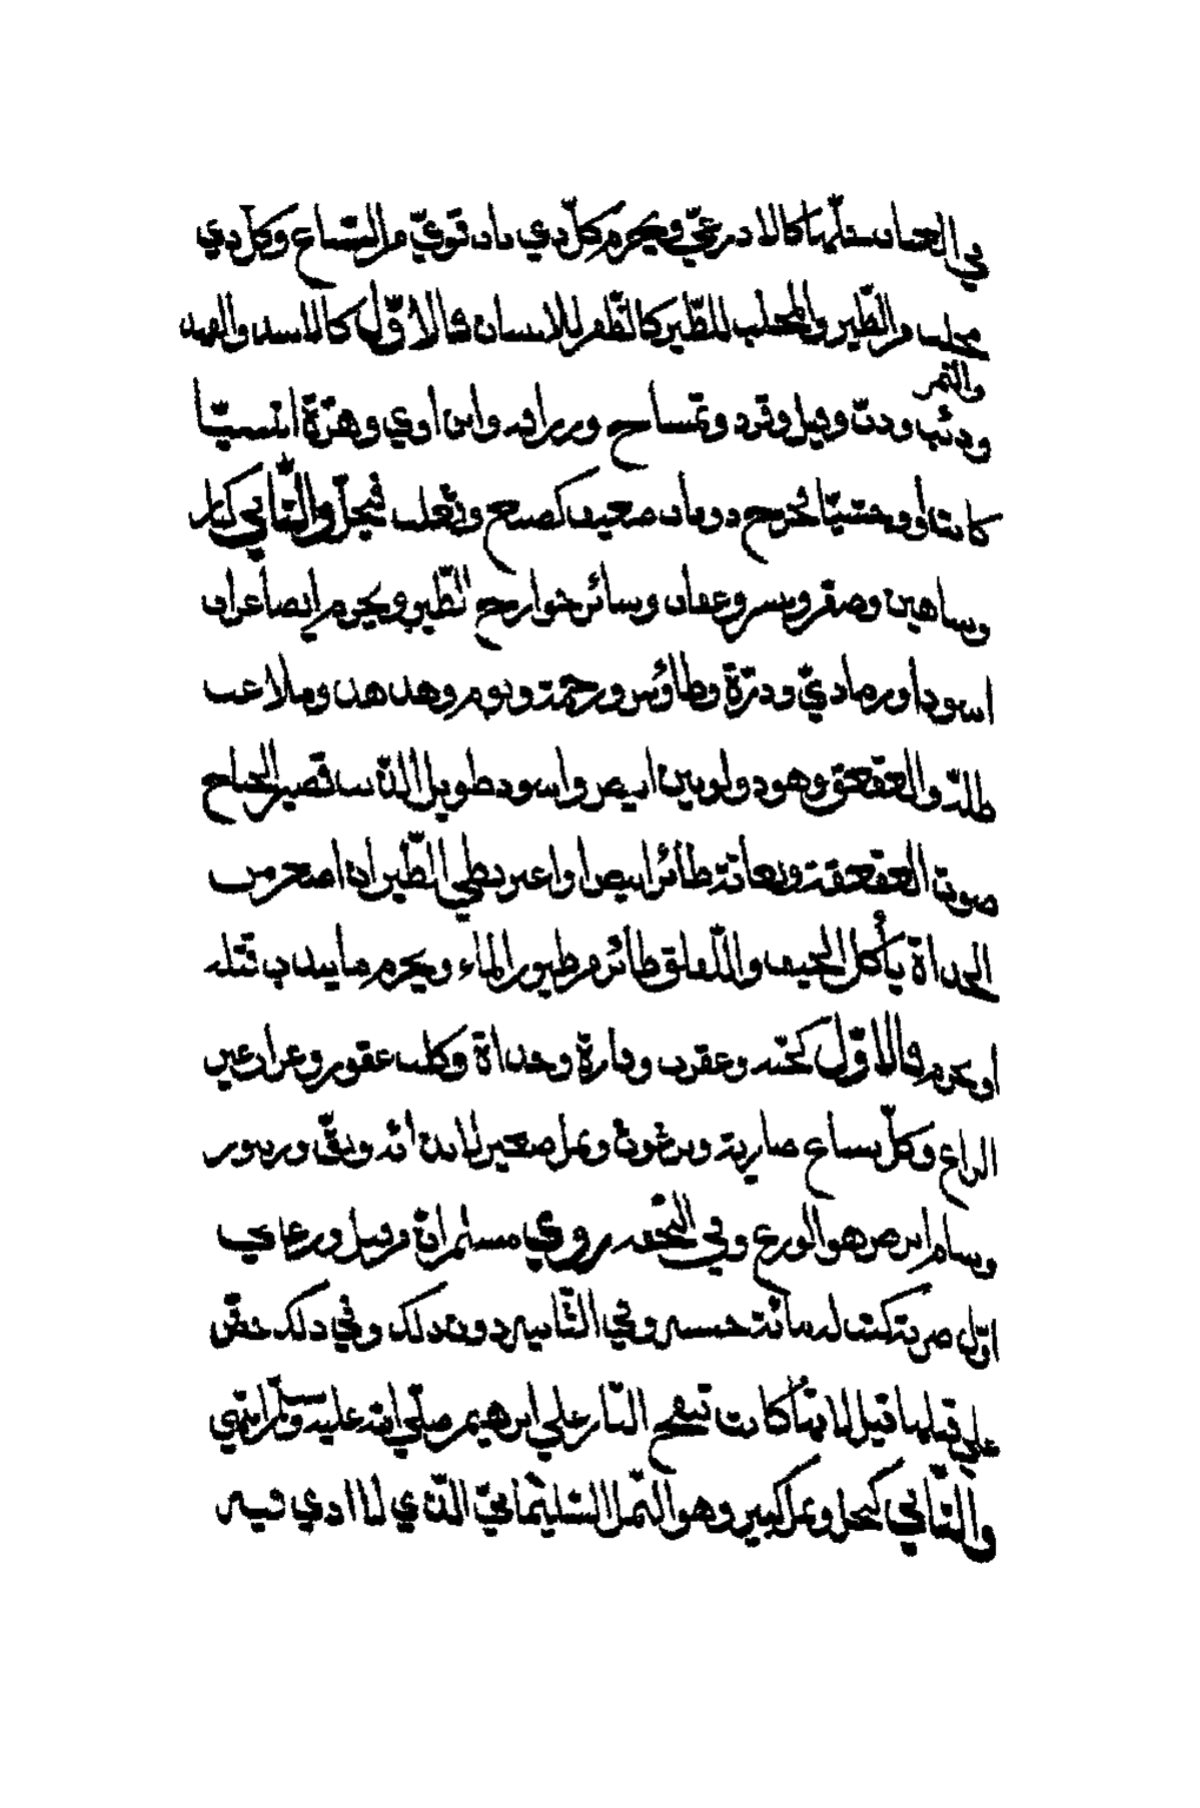 في العباب شبيها كالادمي ويحرم كل ذي ناب قوي من السباع وكل ذي
مخلب من الطير والمخلب للطير كالظفر للانسان فالاول كالاسد والفهد
والنمر
وذئب ودب وفيل وقرد وتمساح وزرافه وابن اوي وهرة انسيا
كانت او وحشيا لخرج ذو ناب ضعيف كضبع وثعلب فيحل والثاني كباز
وشاهين وصقر ونسر وعقاب وسائر جوارح الطير ويحرم ايضا غراب
اسود او رمادي ودرة وطاؤس ورخمة وبوم وهدهد وملاعب
ظله والعقعق وهو ذو لونين ابيض واسود طويل الذنب قصير الجناح
صوته العقعقة وبغاثة طائر ابيض او اغبر بطي الطيران اصغر من
الحداة يأكل الجيف واللقلق طائر من طيور الماء ويحرم ما يندب قتله
او يحرم فالاول كحيه وعقرب وفارة وحداة وكلب عقور وغراب غير
الزاع وكل سباع ضارية وبرغوث ونمل صغير لاذائه وبق وزنبور
وسام ابرص هو الوزع وفي التحفه روي مسلم ان من قتل وزغا في
اول ضربة كتبت له مائة حسنه وفي الثانيه دون ذلك وفي ذلك حض
علي قتلها قيل لانها كانت تنفح النار علي ابرهيم صلي الله عليه وسلم انتهي
والثاني كنحل ونمل كبير وهو النمل السليماني الذي لا اذي فيه